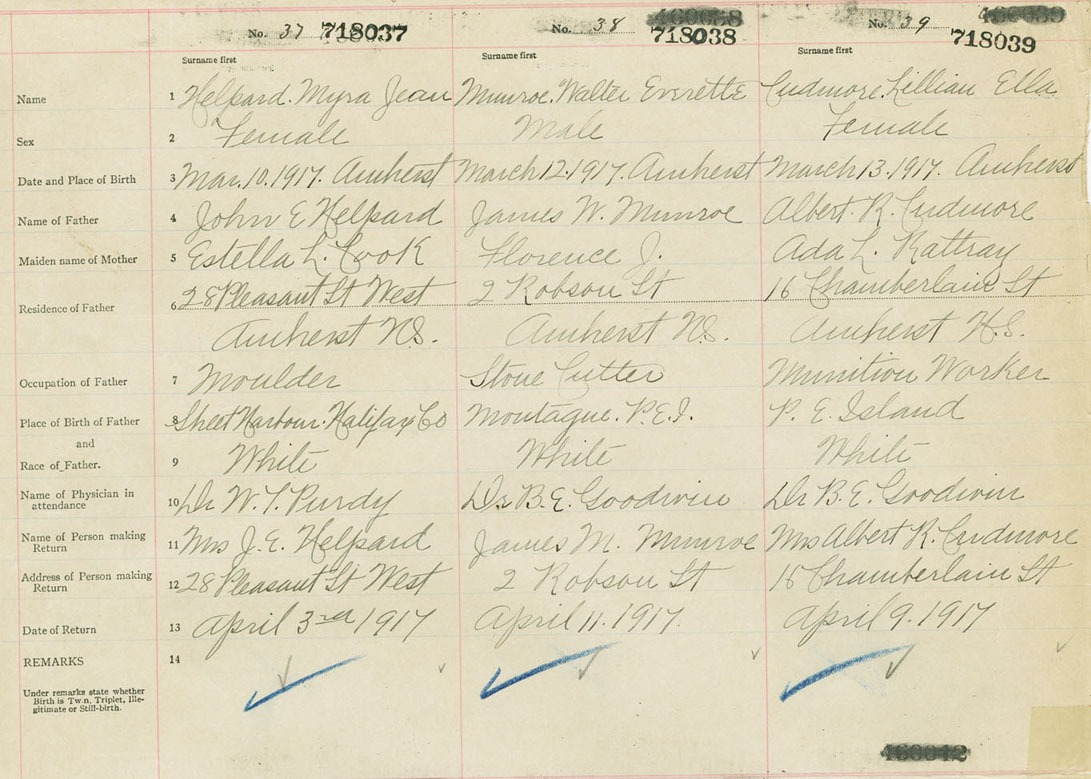 No. 37 718037 No. 38 718038 No. 39 718039
Surname first Surname first Surname first
Name 1 Helpard. Myra Jean Munroe. Walter Everette Cudmore. Lillian Ella
Sex 2 Female Male Female
Date and Place of Birth 3 Mar. 10. 1917. Amherst March 12. 1917. Amherst March 13. 1917. Amherst
Name of Father 4 John E Helpard James W. Munroe Albert. R. Cudmore
Maiden name of Mother 5 Estella L. Cook Florence J. Ada L. Rattray
Residence of Father 6 28 Pleasant St West 2 Robson St 16 Chamberlain St
Amherst N.S. Amherst N.S. Amherst N.S.
Occupation of Father 7 Moulder Stone Cutter Munition Worker
Place of Birth of Father 8 Sheet Harbour. Halifax Co Montague. P.E.I. P. E. Island
and
Race of Father. 9 White White White
Name of Physician in
attendance 10 Dr W. T. Purdy Dr. B. E. Goodwin Dr B. E. Goodwin
Name of Person making
Return 11 Mrs J. E. Helpard James M. Munroe Mrs Albert R. Cudmore
Address of Person making
Return 12 28 Pleasant St West 2 Robson St 16 Chamberlain St
Date of Return 13 April 3rd 1917 April 11. 1917. April 9. 1917
REMARKS 14
Under remarks state whether
Birth is Twin, Triplet, Ille-
gitimate or Still-birth.